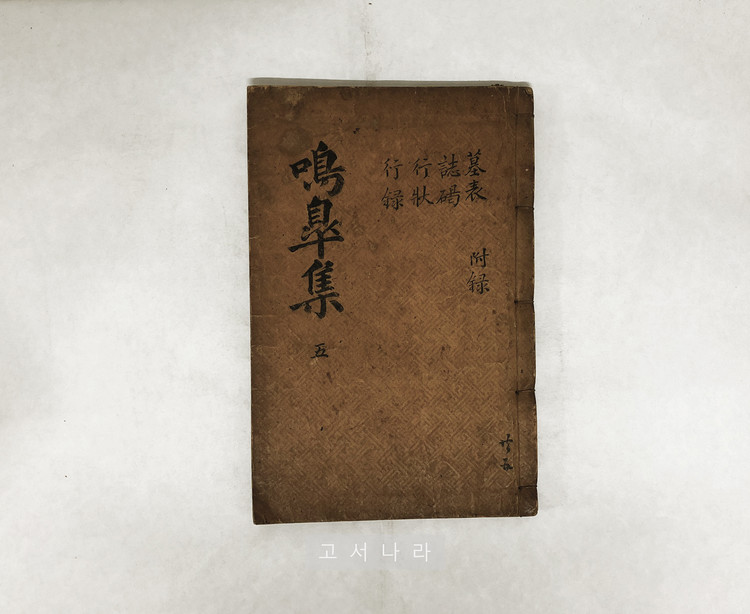 墓表 附録
誌碣
行狀
行録
鳴皐集 五
고서나라